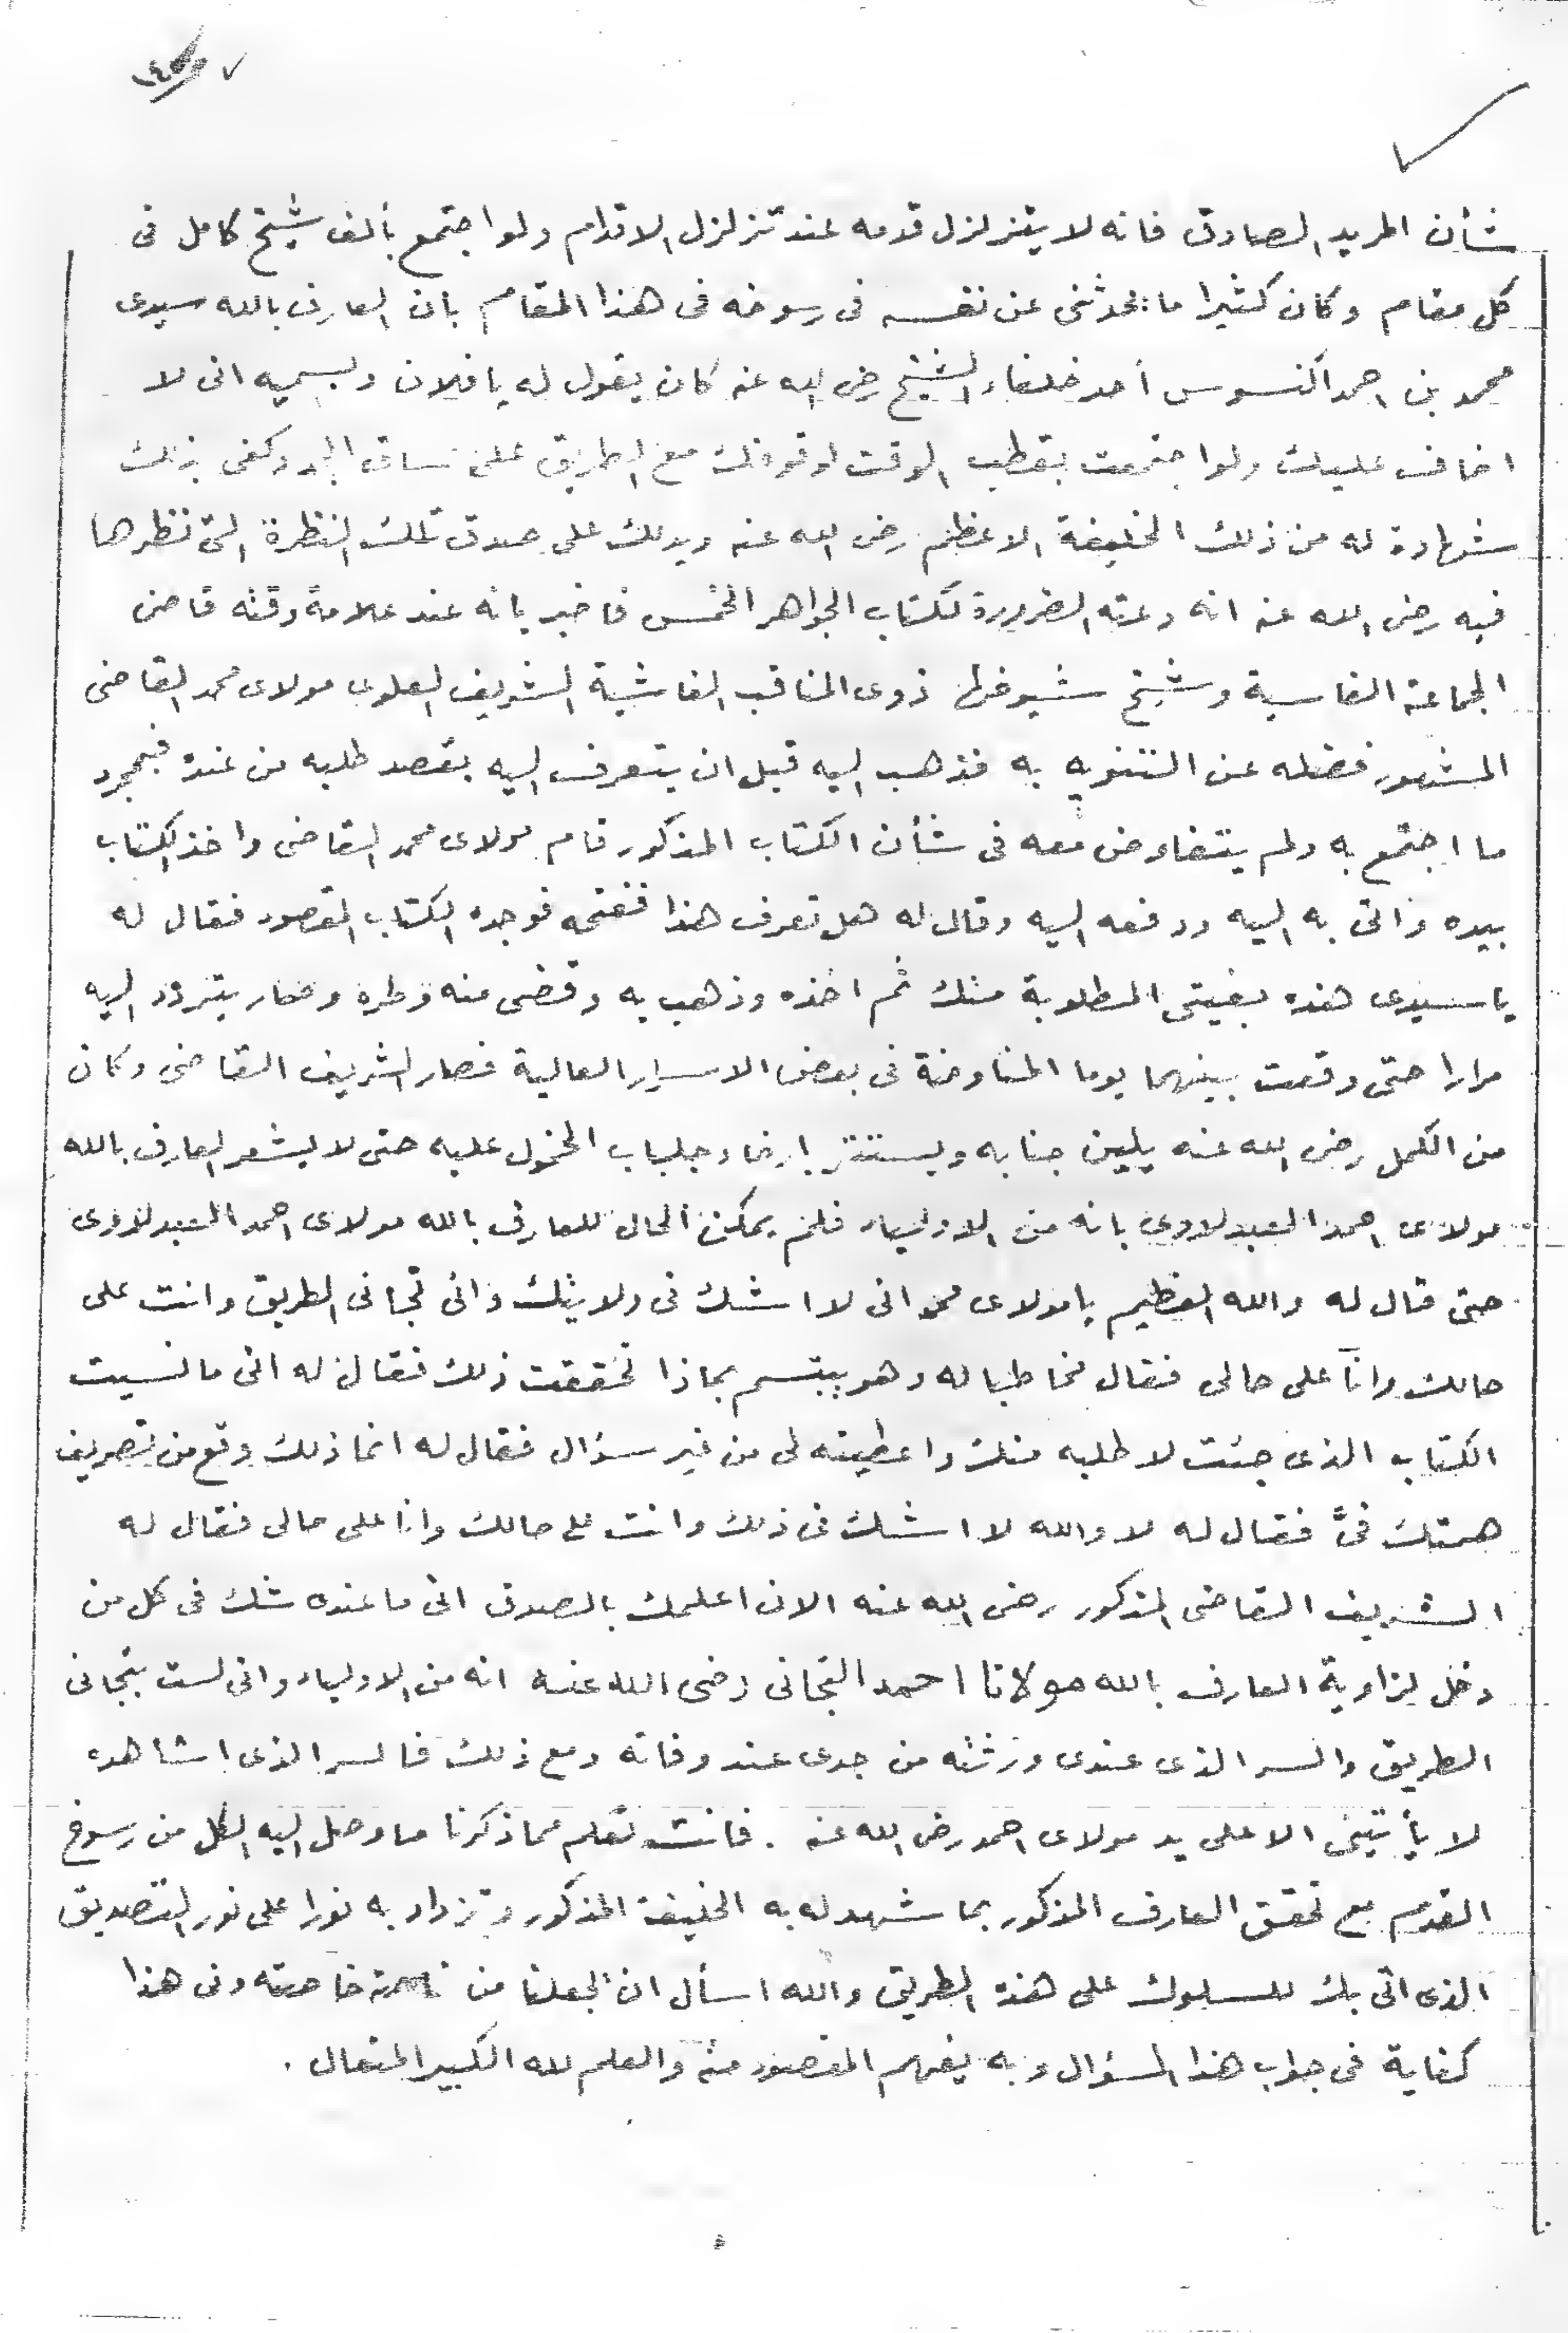 شأن المريد الصادق فانه لا يتزلزل قدمه عند تزلزل الاقدام ولو اجتمع بألف شيخ كامل فى
كل مقام وكان كثيرا ما يحدثنى عن نفسه فى رسوخه فى هذا المقام بان العارف بالله سيدى
محمد بن احمد اكنسوس أحد خلفاء الشيخ رضى الله عنه كان يقول له يا فلان ويسميه انى لا
اخاف عليك ولو اجتمعت بقطب الوقت لوقوفك مع الطريق على ساق الجد وكفى بذلك
شهادة له من ذلك الخليفة الاعظم رضى الله عنه ويدلك على صدق تلك النظرة التى نظرها
فيه رضى الله عنه انه دعته الضرورة لكتاب الجواهر الخمس فاخبر بانه عند علامة وقته قاضى
الجماعة الفاسية وشيخ شيوخها ذوى المناقب الفاشية الشريف العلوى مولاى محمد القاضى
المشهور فضله عن التنويه به فذهب اليه قبل ان يتعرف اليه بقصد طلبه من عنده فبمجرد
ما اجتمع به ولم يتفاوض معه فى شأن الكتاب المذكور قام مولاى محمد القاضى واخذ الكتاب
بيده واتى به اليه ودفعه اليه وقال له هل تعرف هذا ففتحه فوجده الكتاب المقصود فقال له
يا سيدى هذه بغيتى المطلوبة منك ثم اخذه وذهب به وقضى منه وطره وصار يتردد اليه
مرارا حتى وقعت بينهما يوما المفاوضة فى بعض الاسرار العالية فصار الشريف القاضى وكان
من الكمل رضى الله عنه يلين جنابه ويستتر بارخاء جلباب الخمول عليه حتى لا يشعر العارف بالله
مولاى احمد العبدلاوى بانه من الاولياء فلم يمكن الحال للعارف بالله مولاى احمد العبدلاوى
حتى قال له والله العظيم يا مولاى محمد انى لا اشك فى ولايتك وانى تجانى الطريق وانت على
حالك وانا على حالى فقال مخاطبا له وهو يبتسم بماذا تحققت ذلك فقال له انى ما نسيت
الكتاب الذى جئت لاطلبه منك واعطيته لى من غير سؤال فقال له انما ذلك وقع من تصريف
همتك فىّ فقال له لا والله لا اشك فى ذلك وانت على حالك وانا على حالى فقال له
الشريف القاضى المذكور رضى الله عنه الان اعلمك بالصدق انى ما عنده شك فى كل من
دخل لزاوية العارف بالله مولانا احمد التجانى رضى الله عنه انه من الاولياء وانى لست بتجانى
الطريق والسر الذى عندى ورثته من جدى عند وفاته ومع ذلك فالسر الذى اشاهده
لا يأتينى الا على يد مولاى احمد رضى الله عنه . فانت تعلم مما ذكرنا ما وصل اليه الكل من رسوخ
القدم مع تحقق العارف المذكور بما شهد له به الخليفة المذكور وتزداد به نورا على نور التصديق
الذى اتى بك للسلوك على هذه الطريق والله اسأل ان يجعلنا من خاصته وفى هذا
كفاية فى جواب هذا السؤال وبه يفهم المقصود منه والعلم لله الكبير المتعال .